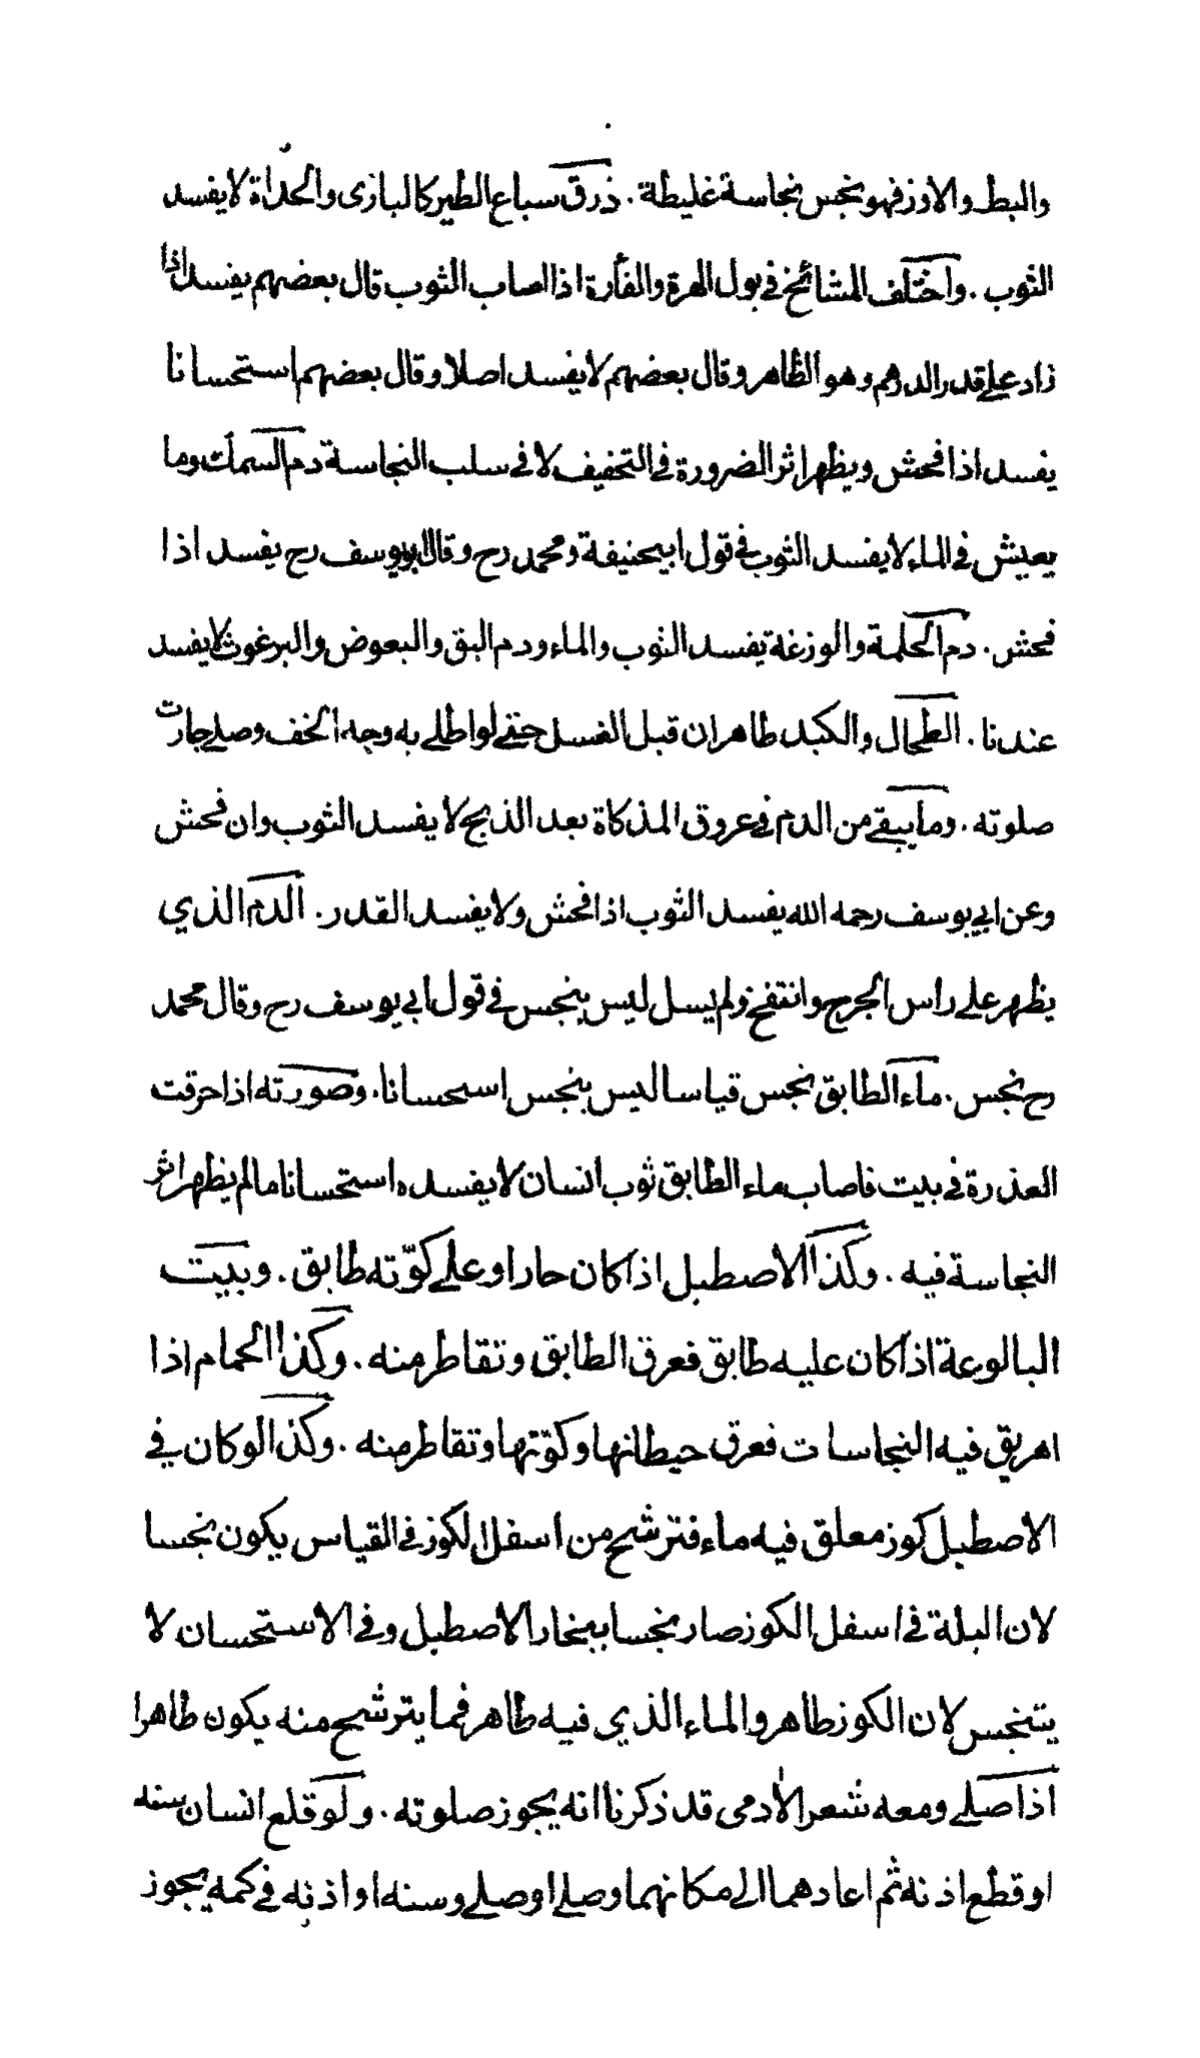 والبط والاوز فهو نجس نجاسة غليظة . ذرق سباع الطير كالبازى والحدأة لا يفسد
الثوب . واختلف المشائخ في بول الهرة والفأرة اذا اصاب الثوب قال بعضهم يفسد اذا
زاد على قدر الدرهم وهو الظاهر وقال بعضهم لا يفسد اصلا وقال بعضهم استحسانا
يفسد اذا فحش ويظهر اثر الضرورة في التخفيف لا في سلب النجاسة دم السمك وما
يعيش في الماء لا يفسد الثوب في قول ابيحنيفة ومحمد رح وقال ابويوسف رح يفسد اذا
فحش . دم الحلمة والوزغة يفسد الثوب والماء ودم البق والبعوض والبرغوث لا يفسد
عندنا . الطحال والكبد طاهران قبل الغسل حتى لو اطلى به وجه الخف وصلى جازت
صلوته . وما يبقى من الدم في عروق المذكاة بعد الذبح لا يفسد الثوب وان فحش
وعن ابي يوسف رحمه الله يفسد الثوب اذا فحش ولا يفسد القدر . الدم الذي
يظهر على راس الجرح وانتفخ ولم يسل ليس بنجس في قول ابي يوسف رح وقال محمد
رح نجس . ماء الطابق نجس قياسا ليس بنجس استحسانا . وصورته اذا حرقت
العذرة في بيت فاصاب ماء الطابق ثوب انسان لا يفسده استحسانا ما لم يظهر اثر
النجاسة فيه . وكذا الاصطبل اذا كان حارا وعلى كوّته طابق . وبيت
البالوعة اذا كان عليه طابق فعرق الطابق وتقاطر منه . وكذا الحمام اذا
اهريق فيه النجاسات فعرق حيطانها وكوّتها وتقاطر منه . وكذا لو كان في
الاصطبل كوز معلق فيه ماء فترشح من اسفل الكوز في القياس يكون نجسا
لان البلة في اسفل الكوز صار نجسا ببخار الاصطبل وفي الاستحسان لا
يتنجس لان الكوز طاهر والماء الذي فيه طاهر فما يترشح منه يكون طاهرا
اذا صلى ومعه شعر الادمى قد ذكرنا انه يجوز صلوته . ولو قلع انسان سنه
او قطع اذنه ثم اعادهما الى مكانهما وصلى او صلى وسنه او اذنه في كمه يجوز